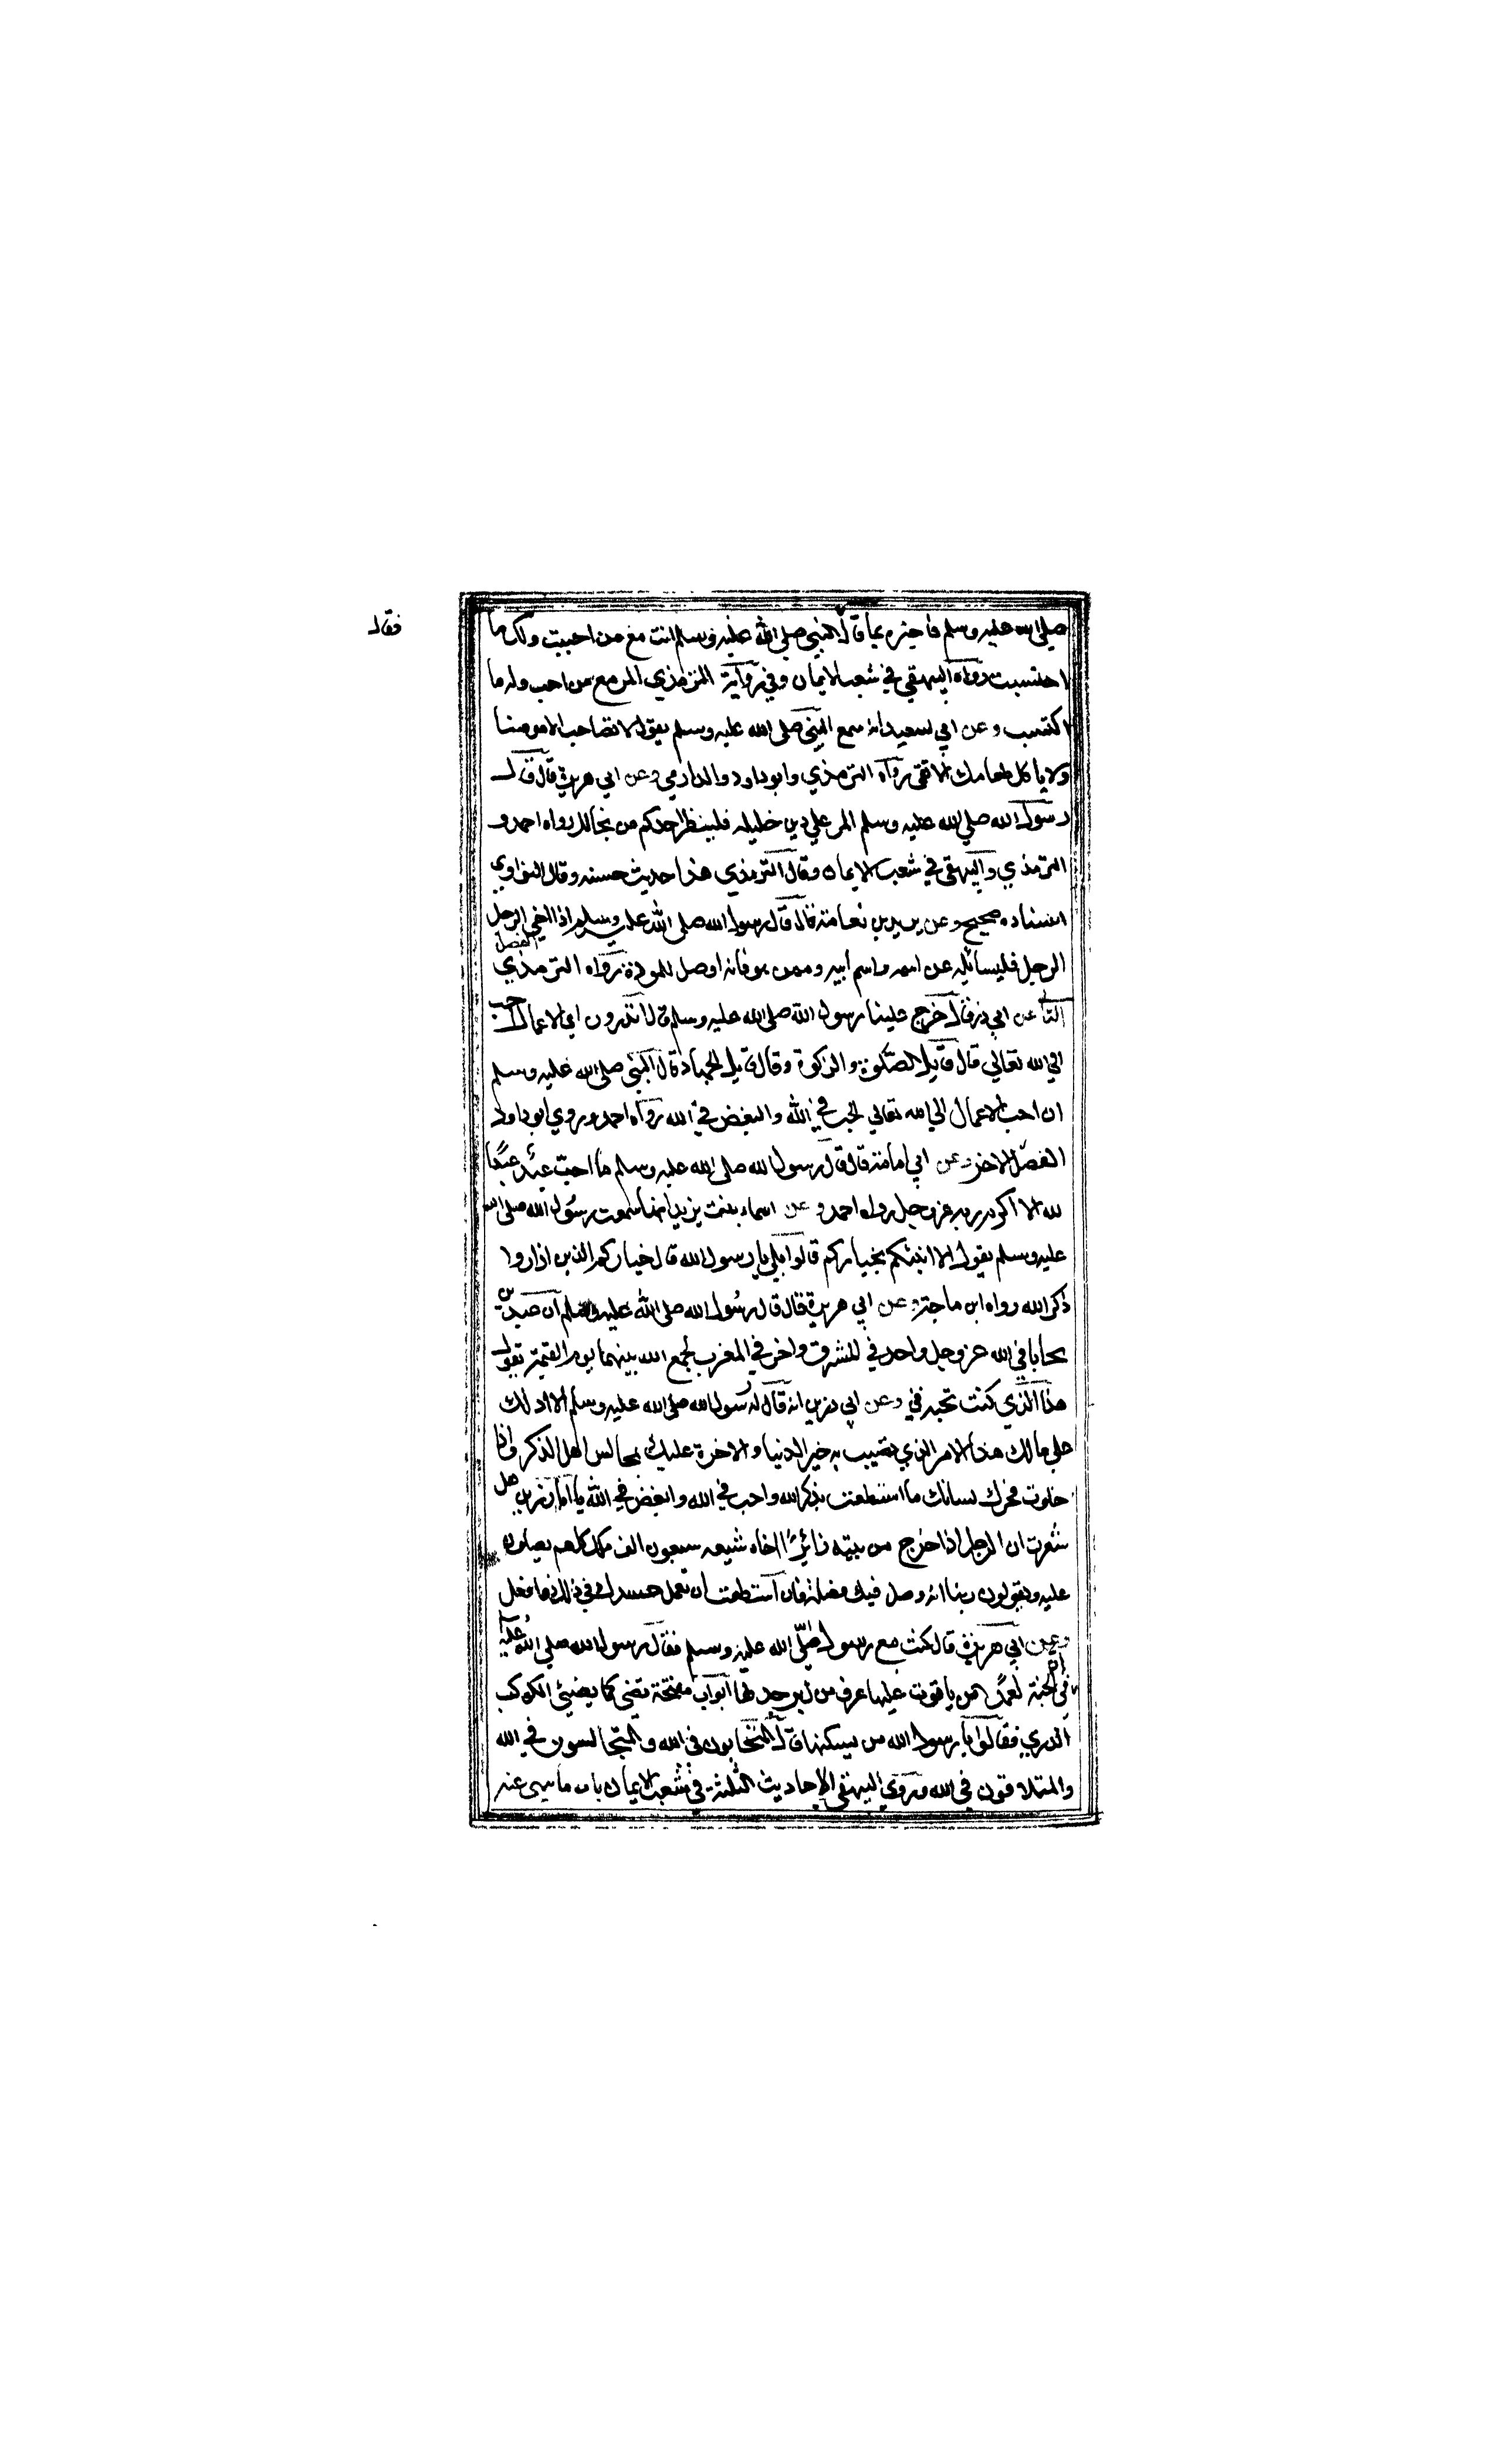 فقال
صلي الله عليه وسلم فاخبره بما قال النبي صلي الله عليه وسلم انت مع من احببت ولك ما
احتسبت رواه البيهقي في شعب الايمان وفي رواية الترمذي المرء مع من احب وله ما
اكتسب وعن ابي سعيد انه سمع النبي صلي الله عليه وسلم يقول لا تصاحب الا مومنا
ولا ياكل طعامك الا تقي رواه الترمذي وابو داود والدارمي وعن ابي هريرة قال قال
رسول الله صلي الله عليه وسلم المرء علي دين خليله فلينظر احدكم من يخالل رواه احمد و
الترمذي والبيهقي في شعب الايمان وقال الترمذي هذا حديث حسن وقال النواوي
اسناده صحيح وعن يزيد بن نعامة قال قال رسول الله صلي الله عليه وسلم اذا اخي الرجل
الرجل فليسائله عن اسمه واسم ابيه وممن هو فانه اوصل للمودة رواه الترمذي الفصل
الثالث عن ابي ذر قال خرج علينا رسول الله صلي الله عليه وسلم قال اتدرون اي الاعمال احب
الي الله تعالي قال قائل الصلوة والزكوة وقال قائل الجهاد قال النبي صلي الله عليه وسلم
ان احب الاعمال الي الله تعالي الحب في الله والبغض في الله رواه احمد وروي ابو داود
الفصل الاخر وعن ابي امامة قال قال رسول الله صلي الله عليه وسلم ما احب عبد عبدا
لله الا اكرم ربه عز وجل رواه احمد وعن اسماء بنت يزيد انها سمعت رسول الله صلي الله
عليه وسلم يقول الا انبئكم بخياركم قالوا بلي يا رسول الله قال خياركم الذين اذا روا
ذكر الله رواه ابن ماجة وعن ابي هريرة قال قال رسول الله صلي الله عليه وسلم ان عبدين
تحابا في الله عز وجل واحد في المشرق واخر في المغرب لجمع الله بينهما يوم القيمة يقول
هذا الذي كنت تحبه في وعن ابي رزين انه قال له رسول الله صلي الله عليه وسلم الا ادلك
علي ملاك هذا الامر الذي تصيب به خير الدنيا والاخرة عليك بمجالس اهل الذكر واذا
خلوت فحرك لسانك ما استطعت بذكر الله واحب في الله وابغض في الله يا ابا رزين هل
شعرت ان الرجل اذا خرج من بيته زائرا اخاه شيعه سبعون الف ملك كلهم يصلون
عليه ويقولون ربنا انه وصل فيك فصله فان استطعت ان تعمل جسدك في ذلك فافعل
وعن ابي هريرة قال كنت مع رسول صلي الله عليه وسلم فقال رسول الله صلي الله عليه
ان في الجنة لعمدا من ياقوت عليها غرف من زبرجد لها ابواب مفتحة تضي كما يضيئ الكوكب
الدري فقالوا يا رسول الله من يسكنها قال المتحابون في الله والمتجالسون في الله
والمتلاقون في الله وروي البيهقي الاحاديث الثلثة في شعب الايمان باب ما ينهي عنه